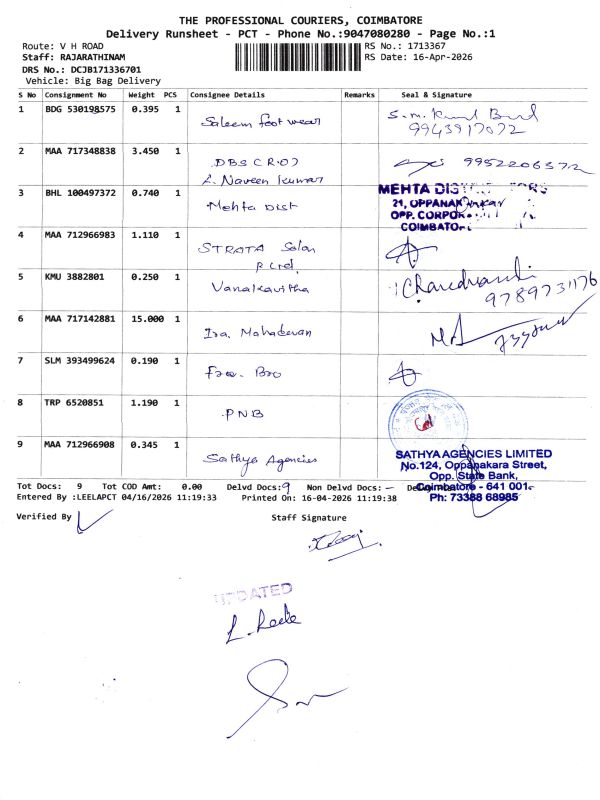 THE PROFESSIONAL COURIERS, COIMBATORE
Delivery Runsheet - PCT - Phone No.:9047080280 - Page No.:1
Route: V H ROAD RS No.: 1713367
Staff: RAJARATHINAM RS Date: 16-Apr-2026
DRS No.: DCJB171336701
Vehicle: Big Bag Delivery
S No Consignment No Weight PCS Consignee Details Remarks Seal & Signature
1 BDG 530198575 0.395 1 Saleem foot wear
9943917072
2 MAA 717348838 3.450 1 DBS CRO7 9952206372
A. Naveen Kumar
3 BHL 100497372 0.740 1 Mehta Dist MEHTA
21, OPPANAK
OPP. CORPOR
COIMBATO
4 MAA 712966983 1.110 1 STRATA
5 KMU 3882801 0.250 1 Vanakavitha
9789731176
6 MAA 717142881 15.000 1 Ira. Mahadevan
7 SLM 393499624 0.190 1 Bro
8 TRP 6520851 1.190 1 PNB
9 MAA 712966908 0.345 1 Sathya Agencies
SATHYA AGENCIES LIMITED
No.124, Oppanakara Street,
Opp. State Bank,
Coimbatore - 641 001.
Ph: 73388 68985
Tot Docs: 9 Tot COD Amt: 0.00 Delvd Docs: 9 Non Delvd Docs: —
Entered By :LEELAPCT 04/16/2026 11:19:33 Printed On: 16-04-2026 11:19:38
Verified By Staff Signature
UPDATED
L. Leela